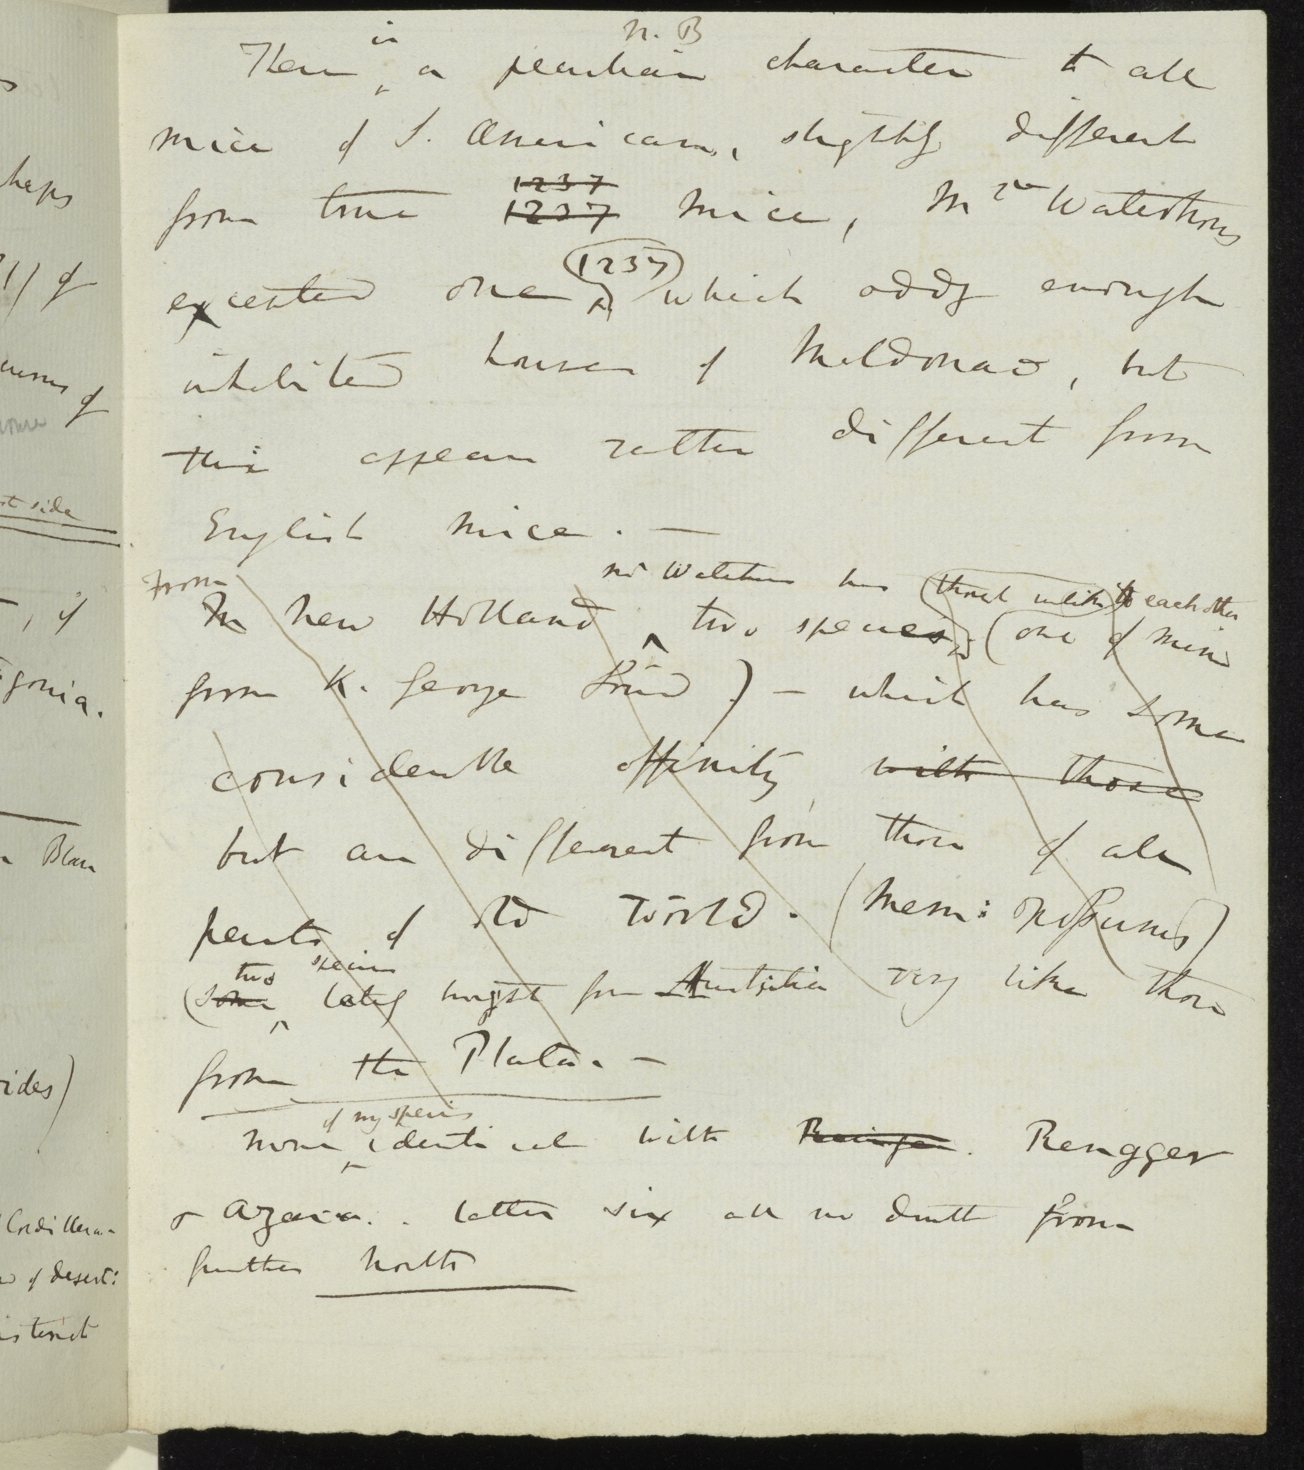 s
haps
of
N. B
is
There a peculiar character to all
mice of S. American, slightly different
1237
from true 1237 mice, Mr Waterhous
1237
excepted one which oddy enough
inhabited houses of Maldonado, but
this appears rather different from
English Mice. —
Mr Waterhous has though unlike to each other
From
In New Holland two species, (one of mine
from K. George Sound) — which has some
considerable affinity with those
but are different from those of all
parts of old World. (Mem: opossums)
two species
(some lately brought from Australia very like those
from the Plata. —
of my species
none identical with Renger. Rengger
& Azara. latter six all no doubt from
further North
of
st side
, if
gonia.
Blan
ides)
Cordillera
of desert:
istinct